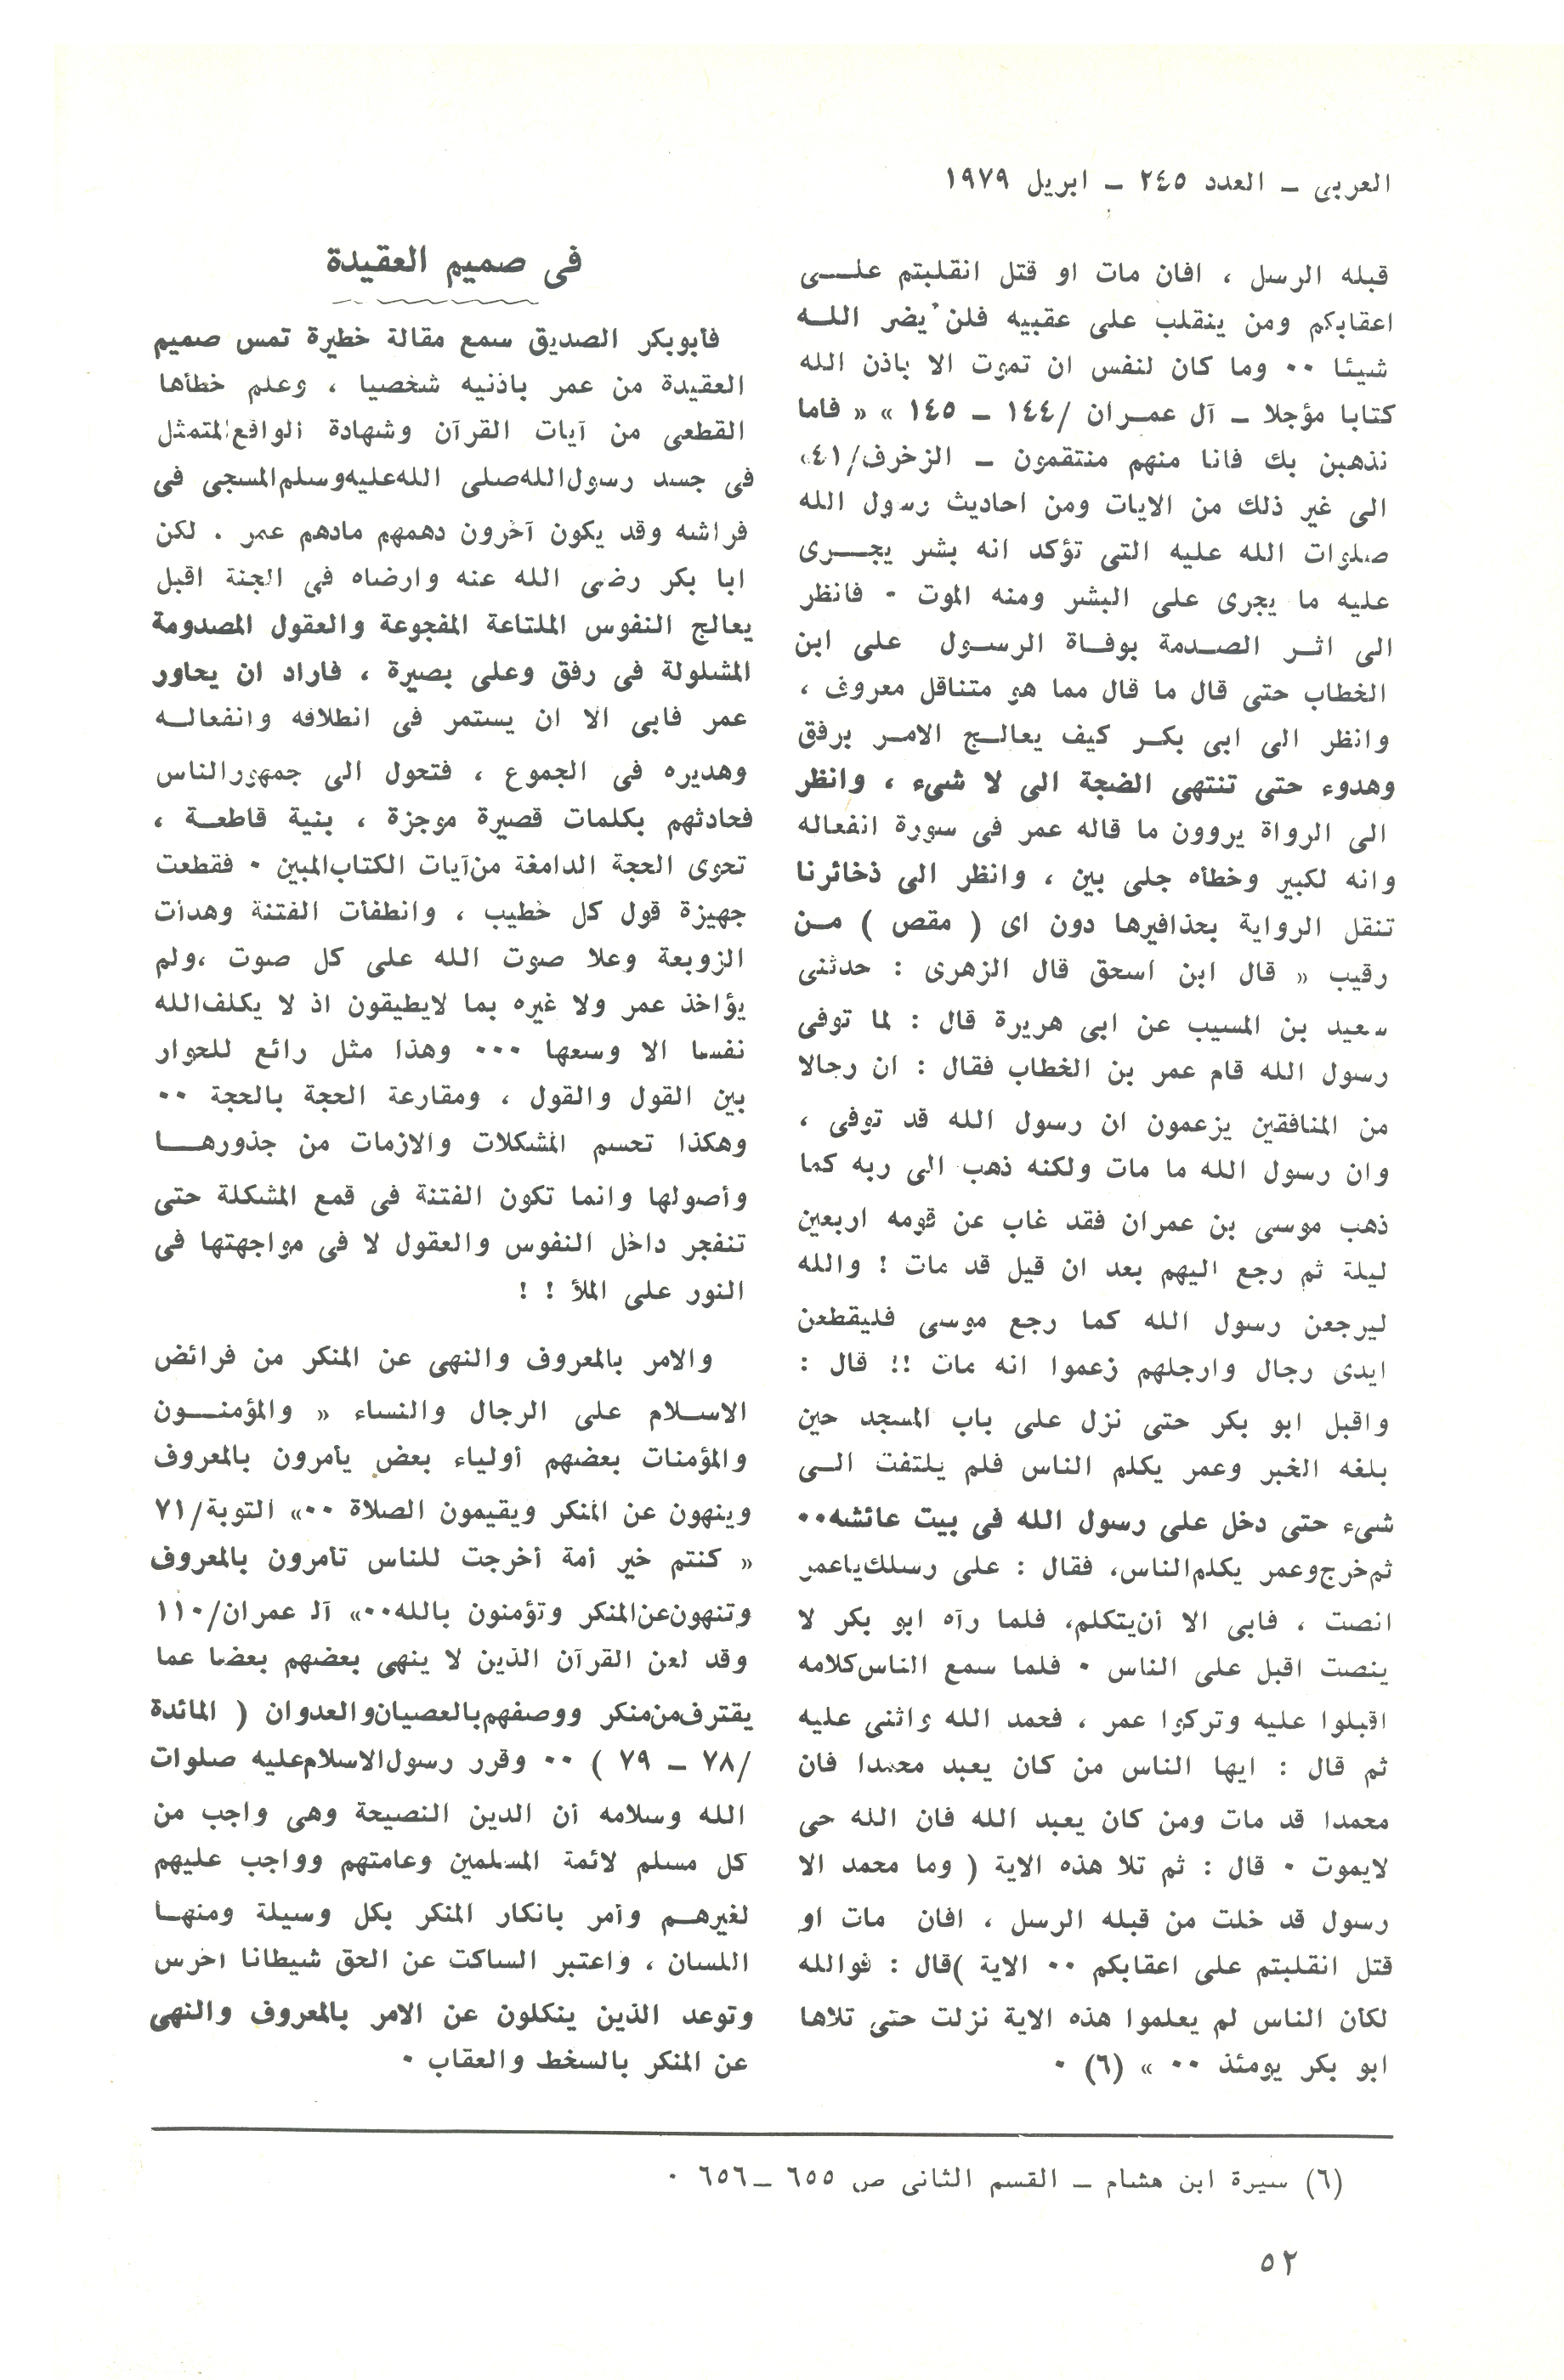 العربى ــ العدد ٢٤٥ ــ ابريل ١٩٧٩
قبله الرسل ، افان مات او قتل انقلبتم علــــى
اعقابكم ومن ينقلب على عقبيه فلن يضر اللــه
شيئا ٠٠ وما كان لنفس ان تموت الا باذن الله
كتابا مؤجلا ــ آل عمــران /١٤٤ ــ ١٤٥ » « فاما
نذهبن بك فانا منهم منتقمون ــ الزخرف/٤١»
الى غير ذلك من الايات ومن احاديث رسول الله
صلوات الله عليه التى تؤكد انه بشر يجـــرى
عليه ما يجرى على البشر ومنه الموت ٠ فانظر
الى اثــر الصــدمة بوفــاة الرســول على ابن
الخطاب حتى قال ما قال مما هو متناقل معروف ،
وانظر الى ابى بكــر كيف يعالــج الامــر برفق
وهدوء حتى تنتهى الضجة الى لا شىء ، وانظر
الى الرواة يروون ما قاله عمر فى سورة انفعاله
وانه لكبير وخطأه جلى بين ، وانظر الى ذخائرنا
تنقل الرواية بحذافيرها دون اى ( مقص ) مــن
رقيب « قال ابن اسحق قال الزهرى : حدثنى
سعيد بن المسيب عن ابى هريرة قال : لما توفى
رسول الله قام عمر بن الخطاب فقال : ان رجالا
من المنافقين يزعمون ان رسول الله قد توفى ،
وان رسول الله ما مات ولكنه ذهب الى ربه كما
ذهب موسى بن عمران فقد غاب عن قومه اربعين
ليلة ثم رجع اليهم بعد ان قيل قد مات ! والله
ليرجعن رسول الله كما رجع موسى فليقطعن
ايدى رجال وارجلهم زعموا انه مات !! قال :
واقبل ابو بكر حتى نزل على باب المسجد حين
بلغه الخبر وعمر يكلم الناس فلم يلتفت الــى
شىء حتى دخل على رسول الله فى بيت عائشه٠٠
ثم خرج وعمر يكلم الناس، فقال : على رسلك ياعمر
انصت ، فابى الا أن يتكلم، فلما رآه ابو بكر لا
ينصت اقبل على الناس ٠ فلما سمع الناس كلامه
اقبلوا عليه وتركوا عمر ، فحمد الله واثنى عليه
ثم قال : ايها الناس من كان يعبد محمدا فان
محمدا قد مات ومن كان يعبد الله فان الله حى
لايموت ٠ قال : ثم تلا هذه الاية ( وما محمد الا
رسول قد خلت من قبله الرسل ، افان مات او
قتل انقلبتم على اعقابكم ٠٠ الاية )قال : فوالله
لكأن الناس لم يعلموا هذه الاية نزلت حتى تلاها
ابو بكر يومئذ ٠٠ » (٦) ٠
فى صميم العقيدة
فأبوبكر الصديق سمع مقالة خطيرة تمس صميم
العقيدة من عمر باذنيه شخصيا ، وعلم خطأها
القطعى من آيات القرآن وشهادة الواقع المتمثل
فى جسد رسول الله صلى الله عليه وسلم المسجى فى
فراشه وقد يكون آخرون دهمهم مادهم عمر . لكن
ابا بكر رضى الله عنه وارضاه فى الجنة اقبل
يعالج النفوس الملتاعة المفجوعة والعقول المصدومة
المشلولة فى رفق وعلى بصيرة ، فاراد ان يحاور
عمر فابى الا ان يستمر فى انطلاقه وانفعالــه
وهديره فى الجموع ، فتحول الى جمهور الناس
فحادثهم بكلمات قصيرة موجزة ، بنية قاطعــة ،
تحوى الحجة الدامغة من آيات الكتاب المبين ٠ فقطعت
جهيزة قول كل خطيب ، وانطفأت الفتنة وهدأت
الزوبعة وعلا صوت الله على كل صوت ،ولم
يؤاخذ عمر ولا غيره بما لايطيقون اذ لا يكلف الله
نفسا الا وسعها ٠٠٠ وهذا مثل رائع للحوار
بين القول والقول ، ومقارعة الحجة بالحجة ٠٠
وهكذا تحسم المشكلات والازمات من جذورهــا
وأصولها وانما تكون الفتنة فى قمع المشكلة حتى
تنفجر داخل النفوس والعقول لا فى مواجهتها فى
النور على الملأ ! !
والامر بالمعروف والنهى عن المنكر من فرائض
الاســلام على الرجال والنساء « والمؤمنــون
والمؤمنات بعضهم أولياء بعض يأمرون بالمعروف
وينهون عن المنكر ويقيمون الصلاة ٠٠» التوبة/٧١
« كنتم خير أمة أخرجت للناس تأمرون بالمعروف
وتنهون عن المنكر وتؤمنون بالله٠٠» آل عمران/١١٠
وقد لعن القرآن الذين لا ينهى بعضهم بعضا عما
يقترف من منكر ووصفهم بالعصيان والعدوان ( المائدة
/٧٨ ــ ٧٩ ) ٠٠ وقرر رسول الاسلام عليه صلوات
الله وسلامه أن الدين النصيحة وهى واجب من
كل مسلم لائمة المسلمين وعامتهم وواجب عليهم
لغيرهــم وأمر بانكار المنكر بكل وسيلة ومنهــا
اللسان ، واعتبر الساكت عن الحق شيطانا اخرس
وتوعد الذين ينكلون عن الامر بالمعروف والنهى
عن المنكر بالسخط والعقاب ٠
(٦) سيرة ابن هشام ــ القسم الثانى ص ٦٥٥ ــ ٦٥٦ ٠
٥٢